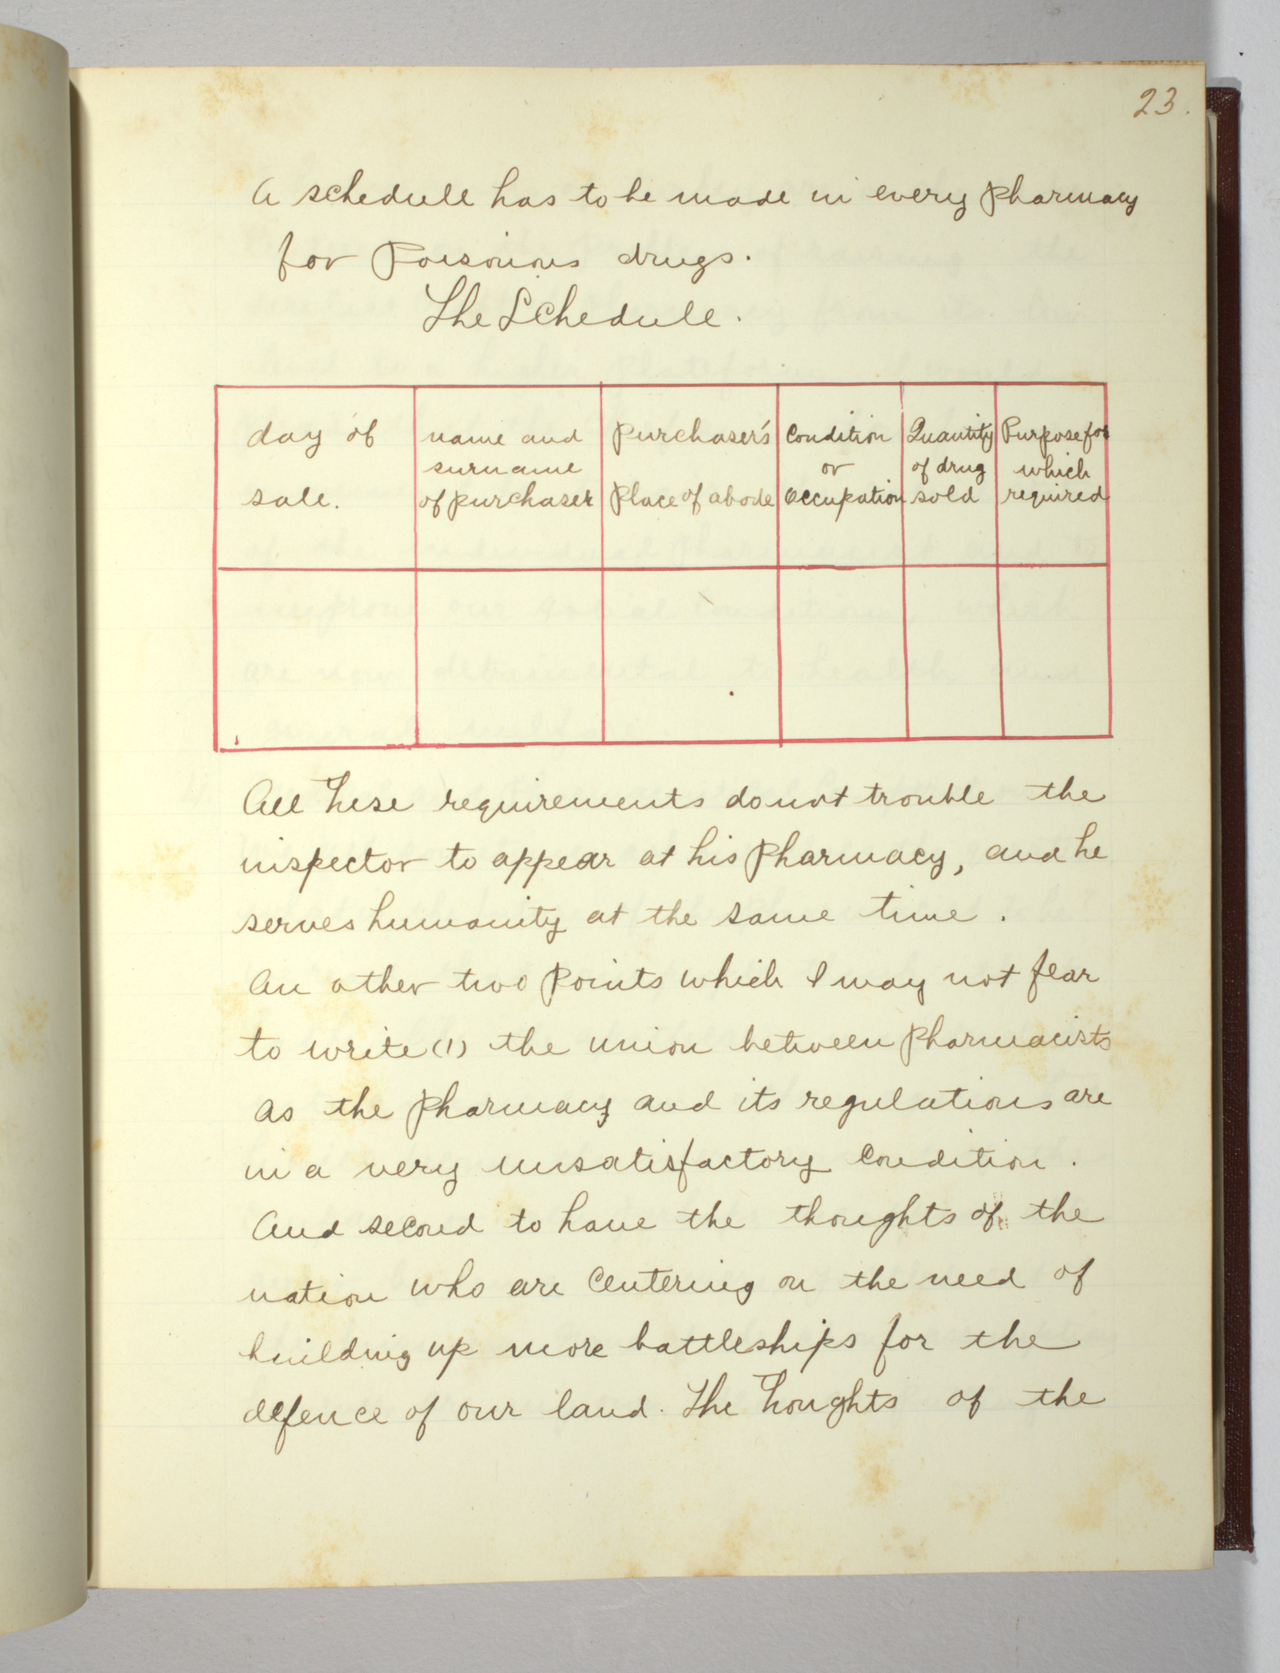 23.
A schedule has to be made in every pharmacy
for Poisonous drugs.
The Schedule.
day of
sale.
name and
surname
of purchaser
Purchaser's
Place of abode
Condition
or
occupation
Quantity
of drug
sold
Purpose for
which
required
All these requirements do not trouble the
inspector to appear at his Pharmacy, and he
serves humanity at the same time.
An other two Points which I may not fear
to write (1) the union between Pharmacists
as the Pharmacy and its regulations are
in a very unsatisfactory condition.
And second to have the thoughts of the
nation who are centering on the need of
building up more battleships for the
defence of our land. The thoughts of the